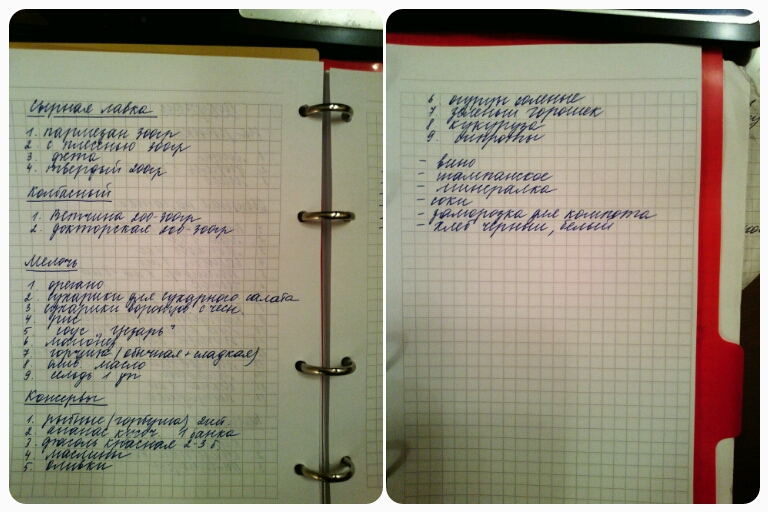 Сырная лавка
1. пармезан 300гр
2 с плесенью 300гр
3. фета
4. твердый 200гр
Колбасный
1. Ветчина 200-300гр
2. докторская 200-300гр
Мелочь
1 орегано
2. сухарики для сухарного салата
3 сухарики с чесн.
4 рис
5 соус "цезарь"
6 майонез
7 горчица (обычная + сладкая)
8 олив масло
9. сельдь 1 уп
Консервы
1. рыбные (горбуша) 2шт.
2. ананас кусоч 1 банка
3 фасоль красная 2-3 б.
4 маслины
5. оливки
6 огурцы соленые
7 зеленый горошек
8 кукуруза
9.
- вино
- шампанское
- минералка
- соки
- заморозка для компота
- хлеб черный, белый